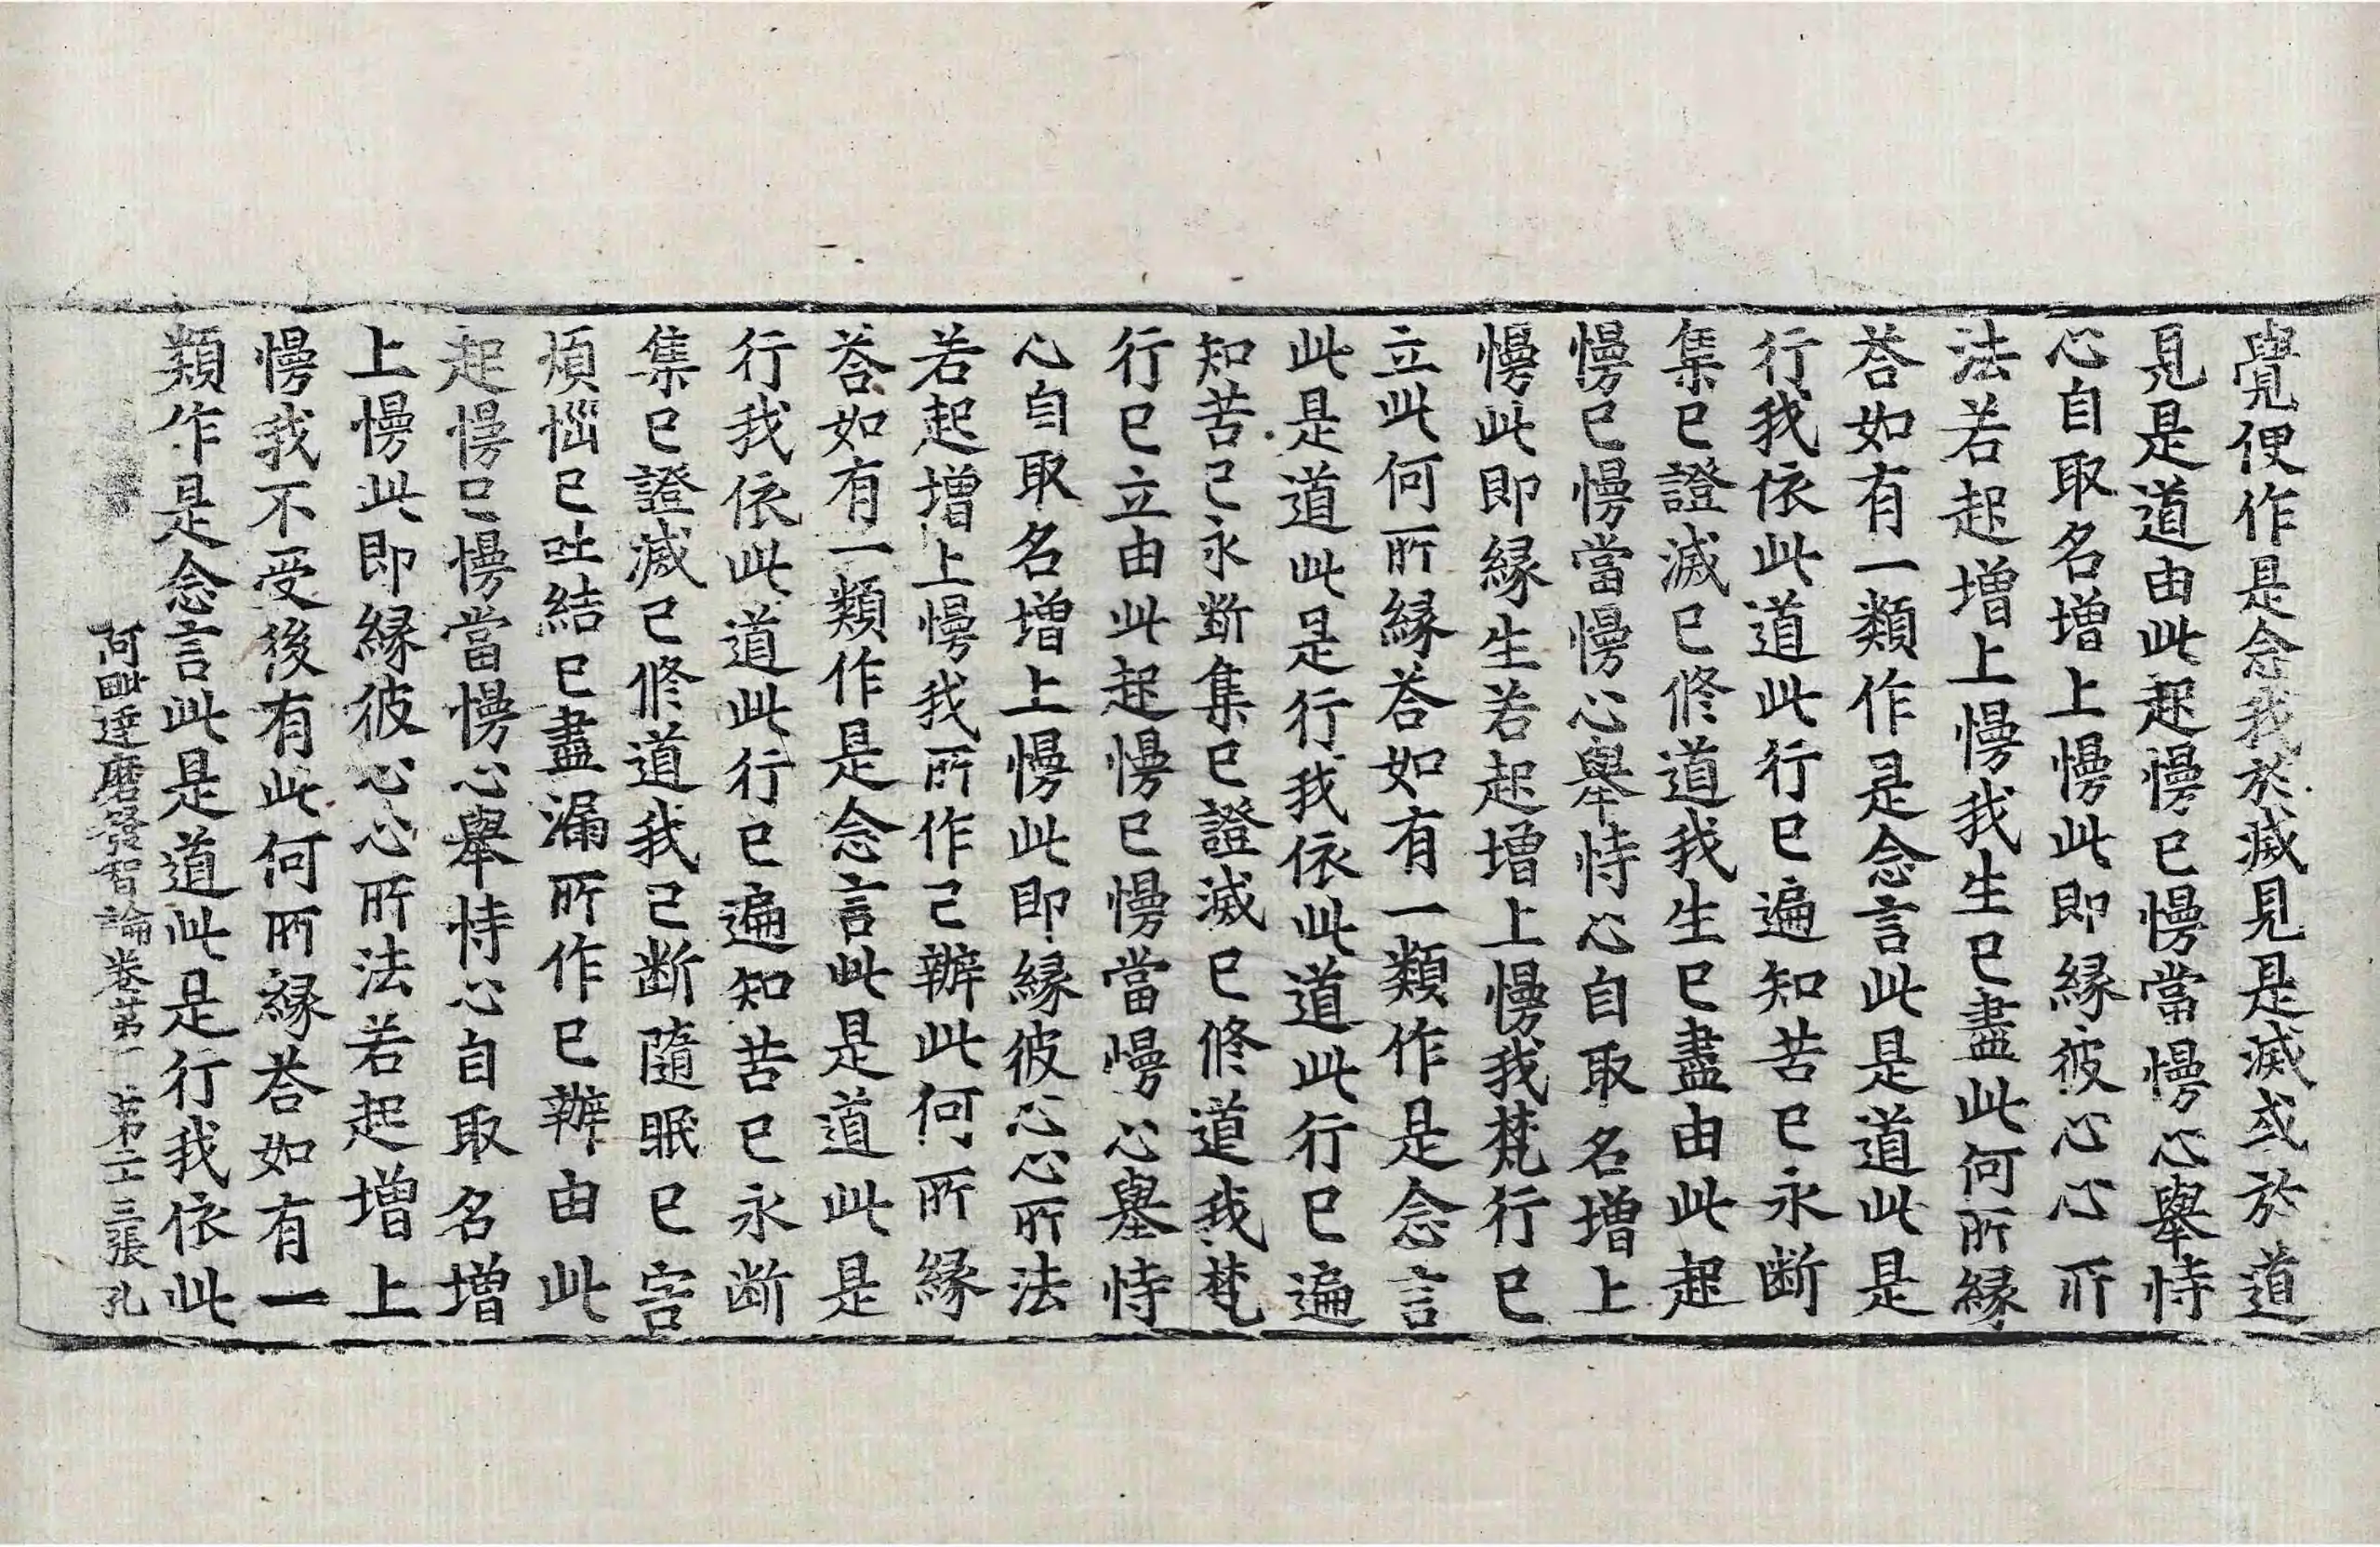 覺便作是念我於滅見是滅或於道
見是道由此起慢已慢當慢心舉恃
心自取名增上慢此即緣彼心心所
法若起增上慢我生已盡此何所緣
荅如有一類作是念言此是道此是
行我依此道此行已遍知苦已永断
集已證滅已修道我生已盡由此起
慢已慢當慢心舉恃心自取名增上
慢此即緣生若起增上慢我梵行已
立此何所緣荅如有一類作是念言
此是道此是行我依此道此行已遍
知苦已永断集已證滅已修道我梵
行已立由此起慢已慢當慢心舉恃
心自取名增上慢此即緣彼心心所法
若起增上慢我所作已辦此何所緣
荅如有一類作是念言此是道此是
行我依此道此行已遍知苦已永断
集已證滅已修道我已断隨眠已害
煩惱已吐結已盡漏所作已辦由此
起慢已慢當慢心舉恃心自取名增
上慢此即緣彼心心所法若起增上
慢我不受後有此何所緣荅如有一
類作是念言此是道此是行我依此
阿毗達磨發智論卷苐一 第二十三張 孔